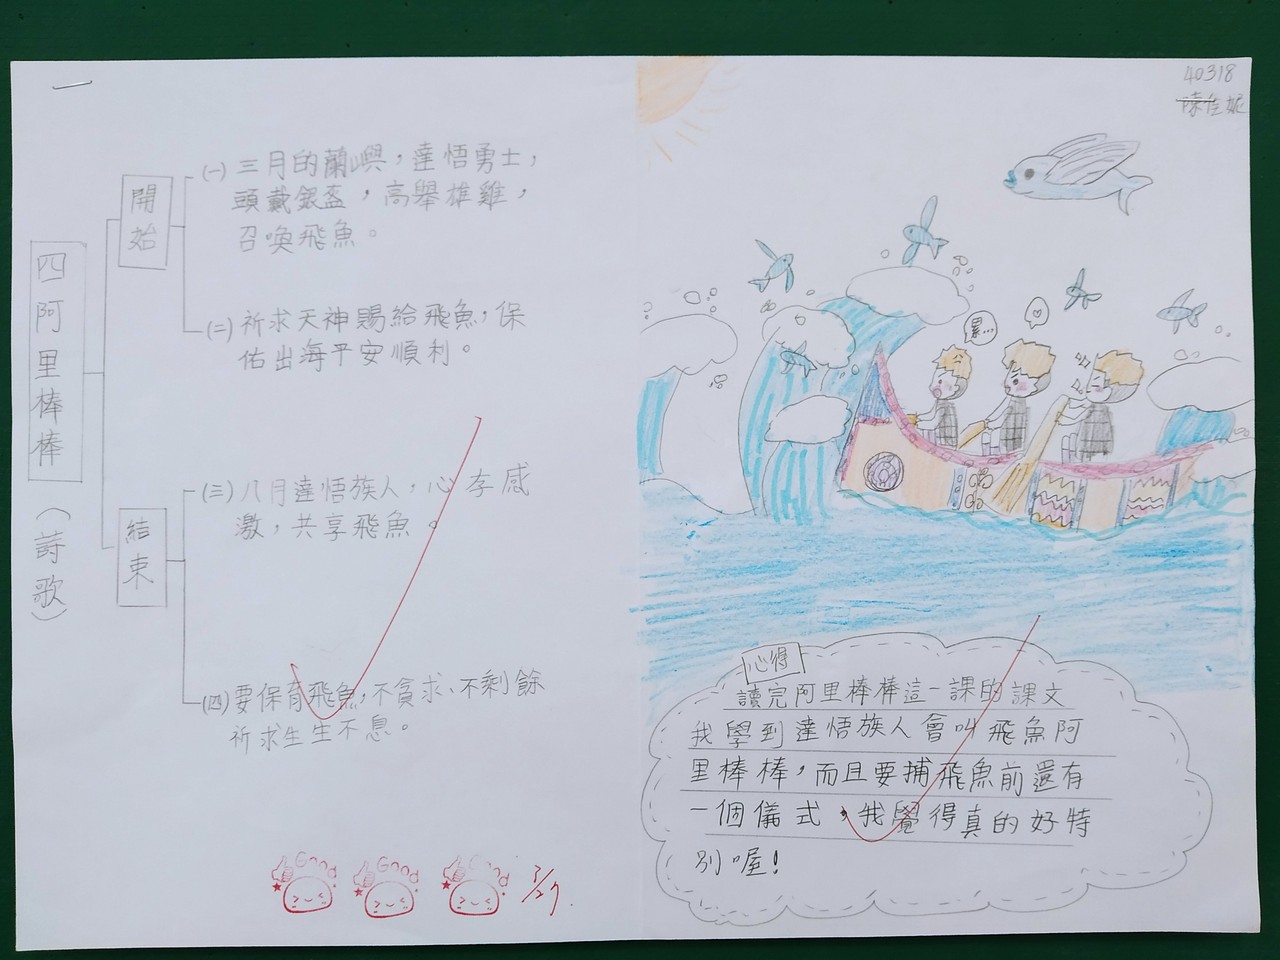 四阿里棒棒（詩歌）
開始
(一)三月的蘭嶼，達悟勇士，
頭戴銀盔，高舉雄雞，
召喚飛魚。
(二)祈求天神賜給飛魚，保
佑出海平安順利。
結束
(三)八月達悟族人，心存感
激，共享飛魚。
(四)要保育飛魚，不貪求、不剩餘
祈求生生不息。
Good
Good
Good
3/27.
40318
陳佳妮
累...
心得
讀完阿里棒棒這一課的課文
我學到達悟族人會叫飛魚阿
里棒棒，而且要捕飛魚前還有
一個儀式，我覺得真的好特
別喔！